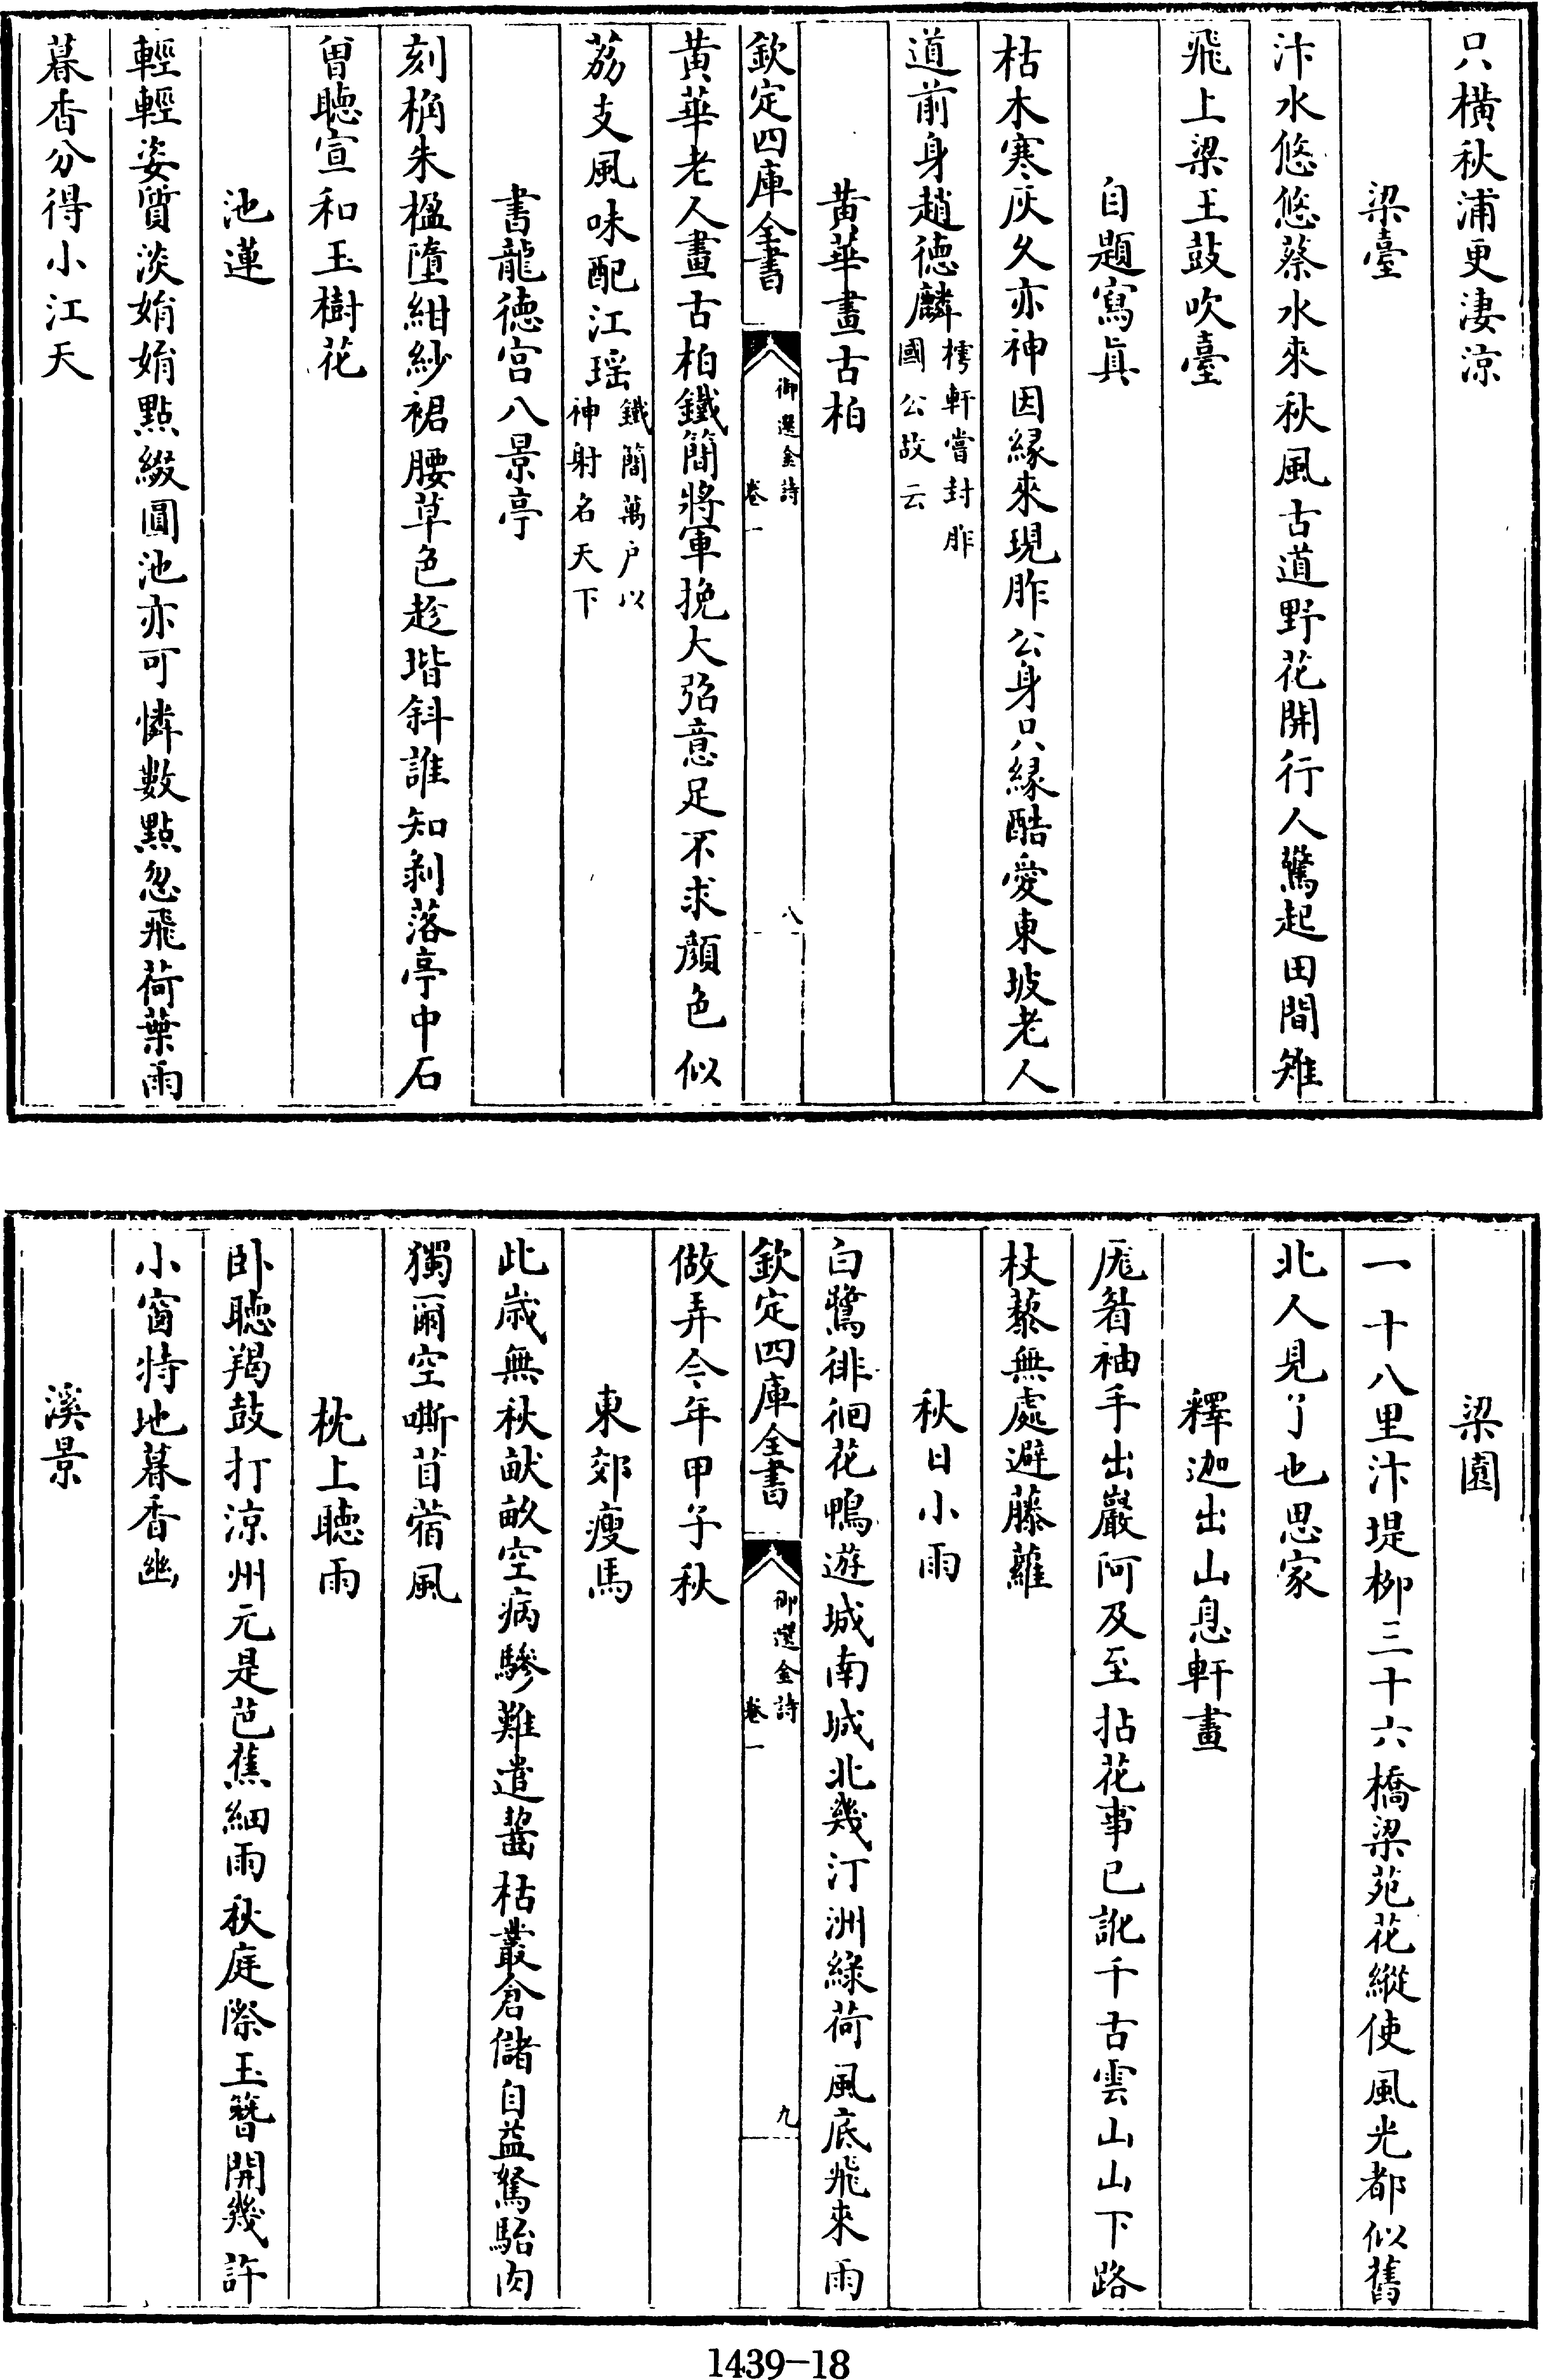 只橫秋浦更淒涼
梁臺
汴水悠悠蔡水來秋風古道野花開行人驚起田間雉
飛上梁王鼓吹臺
自題寫真
枯木寒灰久亦神因緣來現胙公身只緣酷愛東坡老人
道前身趙德麟樗軒嘗封胙
國公故云
黃華畫古柏
欽定四庫全書
御選金詩
卷一
八
黃華老人畫古柏鐵簡將軍挽大弨意足不求顔色似
荔支風味配江瑶鐵簡萬户以
神射名天下
書龍德宫八景亭
刻桷朱楹墮紺紗裙腰草色趁堦斜誰知剥落亭中石
曽聴宣和玉樹花
池蓮
輕輕姿質淡娟娟點綴圓池亦可憐數點忽飛荷葉雨
暮香分得小江天
梁園
一十八里汴堤柳三十六橋梁苑花縱使風光都似舊
北人見了也思家
釋迦出山息軒畫
厖眉袖手出巖阿及至拈花事已訛千古雲山山下路
杖藜無處避藤蘿
秋日小雨
白鷺徘徊花鴨遊城南城北幾汀洲綠荷風底飛來雨
欽定四庫全書
御選金詩
卷一
九
做弄今年甲子秋
東郊瘦馬
此歳無秋畎畝空病驂難遣齧枯叢倉儲自益駑駘肉
獨爾空嘶苜蓿風
枕上聴雨
卧聴羯鼓打涼州元是芭蕉細雨秋庭際玉簪開幾許
小窗特地暮香幽
溪景
1439-18